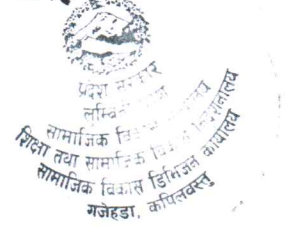 प्रदेश सरकार
लुम्बिनी
सामाजिक विकास
शिक्षा तथा सामाजिक विकास निर्देशनालय
सामाजिक विकास डिभिजन कार्यालय
गजेहडा, कपिलवस्तु